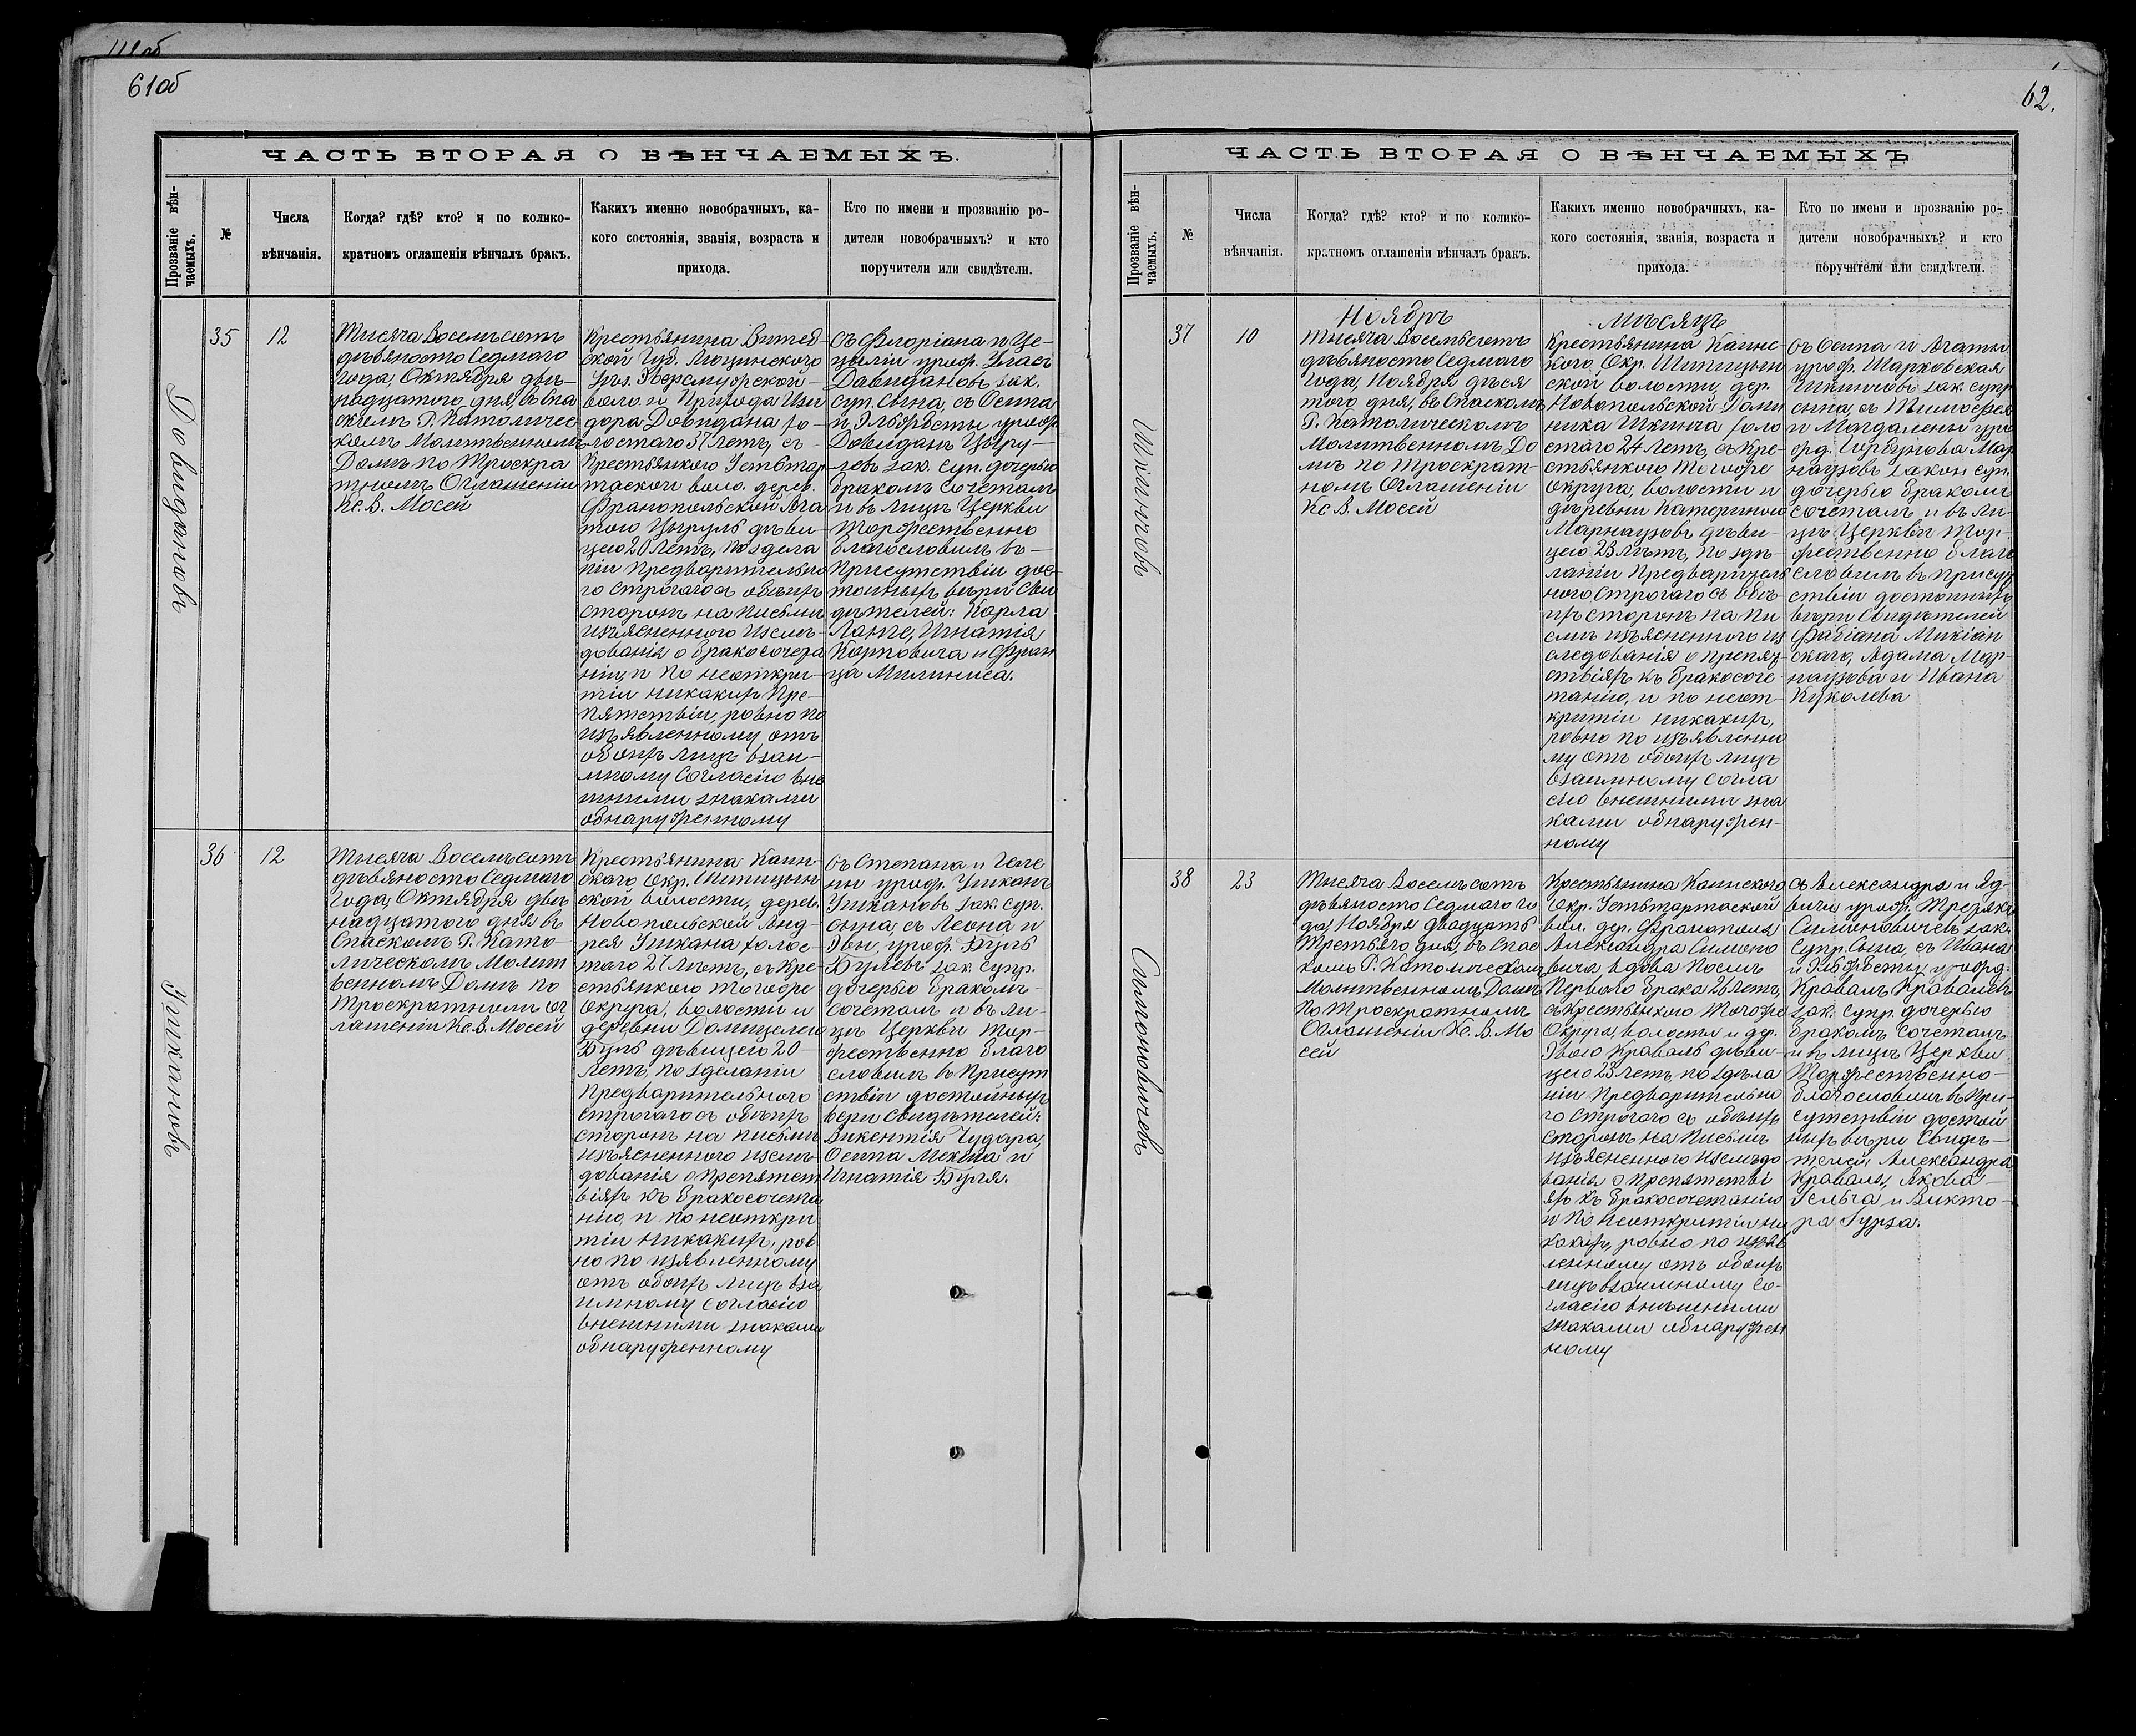 61об
ЧАСТЬ ВТОРАЯ О ВѢНЧАЕМЫХЪ.
Прозваніе вѣн-
чаемыхъ.
№
Числа
вѣнчанія.
Когда? гдѣ? кто? и по колико-
кратномъ оглашеніи вѣнчалъ бракъ.
Какихъ именно новобрачныхъ, ка-
кого состоянія, званія, возраста и
прихода.
Кто по имени и прозванію ро-
дители новобрачныхъ? и кто
поручители или свидѣтели.
Довидановъ
35
12
Тысяча Восемьсотъ
дѣвяносто Седмаго
Года, Октября двѣ-
надцатого дня, въ Спа
скомъ Р. Католичес
комъ Молитвенномъ
Домѣ по Троекра
тномъ Оглашеніи
Кс. В. Мосей
Крестьянина Витеб-
ской Губ. Люцинского
Уѣз.
воло. и Прихода Изи
дора Довидана хо-
лостаго 37 Летъ, съ-
Крестьянкого Устьтар
таской воло. дерев.
Франопольской Ага
тою Цыруль дѣви-
цею 20 Летъ, по здела
ніи Предварительно
го Строгаго съ обѣихъ
сторонъ на письмѣ
изъясненного изслѣ-
дованія о бракосочета
нію, и по неоткры-
тіи никакихъ Пре-
пятствіи, ровно по
изъявленному отъ
обоихъ лицъ взаи-
мному Согласію вне
шними знаками
обнаруженному
Съ Флоріана и Це-
циліи урож.
Давидановъ зак.
суп. Сына, съ Осипа
и Эльжбеты урож.
Довиданъ Цыру-
левъ зак. Суп. дочерью
бракомъ Сочеталъ
и въ лицѣ Церкви
Торжественно
благословилъ въ-
Присутствіи дос-
тойныхъ вѣри Сви
дѣтелей: Карла
Ланге, Игнатія
Карповича и Фран
ца Милиниса.
Ушкановъ
36
12
Тысяча Восемьсотъ
дѣвяносто Седмаго
Года, Октября двѣ
надцатого дня въ
Спаскомъ Р. Като-
лическомъ Молит
венномъ Домѣ по
Троекратномъ Ог
лашеніи Кс. В. Мосей
Крестьянина Каин-
ского Окр. Шипицын
ской волости, дерев.
Новопольской Анд-
рея Ушкана холос-
таго 27 Летъ, съ Кре-
стьянкого того же
Округа, волости и
деревни Домицелею
Буль дѣвицею 20-
Летъ, по зделаніи
Предварительного
Строгаго съ обѣихъ
сторонъ на письмѣ
изъясненного изслѣ-
дованія о препятст
віяхъ къ бракосочета
нію, и по неоткры
тіи никакихъ, ров
но по изявленному
отъ обоихъ лицъ вза
имному Согласію
внешними знаками
обнаруженному
Съ Степана и Геле
ны урож. Ушканъ
Ушкановъ зак. Суп.
сына, съ Леона и
Эвы, урож. Буль
Булевъ зак. Супр.
дочерью бракомъ-
Сочеталъ и въ ли-
цѣ Церкви Тор-
жественно благо
словилъ въ Присут
ствіи достойныхъ
вери Свидѣтелей:
Викентія Чудара,
Осипа Мекша и
Игнатія Буля.
62.
ЧАСТЬ ВТОРАЯ О ВѢНЧАЕМЫХЪ
Прозваніе вѣн-
чаемыхъ.
№
Числа
вѣнчанія.
Когда? гдѣ? кто? и по колико-
кратномъ оглашеніи вѣнчалъ бракъ.
Какихъ именно новобрачныхъ, ка-
кого состоянія, званія, возраста и
прихода.
Кто по имени и прозванію ро-
дители новобрачныхъ? и кто
поручители или свидѣтели.
Ноябръ мѣсяцъ
Шкінчовъ
37
10
Тысяча Восемьсотъ
дѣвяносто Седмаго
Года, Ноября дѣся
того дня, въ Спаскомъ
Р. Католическомъ
Молитвенномъ До
мѣ по Троекрат-
номъ Оглашеніи
Кс В. Мосей
Крестьянина Каинс-
кого Окр. Шипицын
ской волости, дер.
Новопольской Доми
ника Шкинча холо
стаго 24 Летъ, съ Кре-
стьянкого того же
Округа, волости и
дѣревни Катериною
Марнаузовъ дѣви-
цею 23 Лѣтъ, по здѣ-
ланіи Предварицель
ного Строгаго съ обѣ-
ихъ сторонъ на пи-
смѣ изъясненного из
следованія о препяц-
ствіяхъ къ бракосоче-
танію, и по неот-
крытіи никакихъ,
ровно по изъявленно
му отъ обоихъ лицъ
взаимному Согла
сію внешними зна
ками обнаружен-
ному
Съ Осипа и Агаты
урож. Шарковская
Шкінчовъ зак. супр
сына, съ Тимофея
и Магдалены уро
жд. Горбунова Мар
наузовъ закон суп.
дочерью бракомъ
сочеталъ и въ ли-
цѣ Церкви тор-
жественно благо
словилъ въ присут
ствіи достойныхъ
вѣри Свидѣтелей
Фабіана Микіан
скаго, Адама Мар-
наузова и Ивана
Куколева
Симоновичевъ
38
23
Тысяча Восемьсотъ
дѣвяносто Седмаго Го
да, Ноября двадцать
Третьяго дня, въ Спас
комъ Р. Католическомъ
Молитвенномъ Домѣ
по Троекратномъ
Оглашеніи Кс. В. Мо
сей
Крестьянина Каинского
Окр. Устьтартаской
вол. дер. Франополя
Александра Симоно
вича вдова послѣ
Первого брака 26 Летъ,
съ Крестьянкого того же
Округа, волости и дер.
Эвою Краваль дѣви-
цею 23 Летъ, по здѣла
ніи Предварительно
го Строгаго съ обѣихъ
сторонъ на письмѣ
изъясненного изслѣдо
ванія о препятстві
яхъ къ бракосочетанію
и по неоткрытіи ни
какихъ, ровно по изъяв
ленному отъ обоихъ
лицъ взаимному Со-
гласію внѣшними
знаками обнаружен
ному
Съ Александра и Яд-
виги урож.
Симоновичевъ зак.
Супр. Сына, съ Ивана
и Эльбжбеты, урожд.
Краваль Кравалевъ
зак. супр. дочерью
бракомъ Сочеталъ
и въ лицѣ Церкви
Торжественно-
благословилъ въ При-
сутствіи достой
ныхъ вѣри Свидѣ-
телей: Александра
Краваля, Якова-
Гельча и Викто-
ра Гурза.